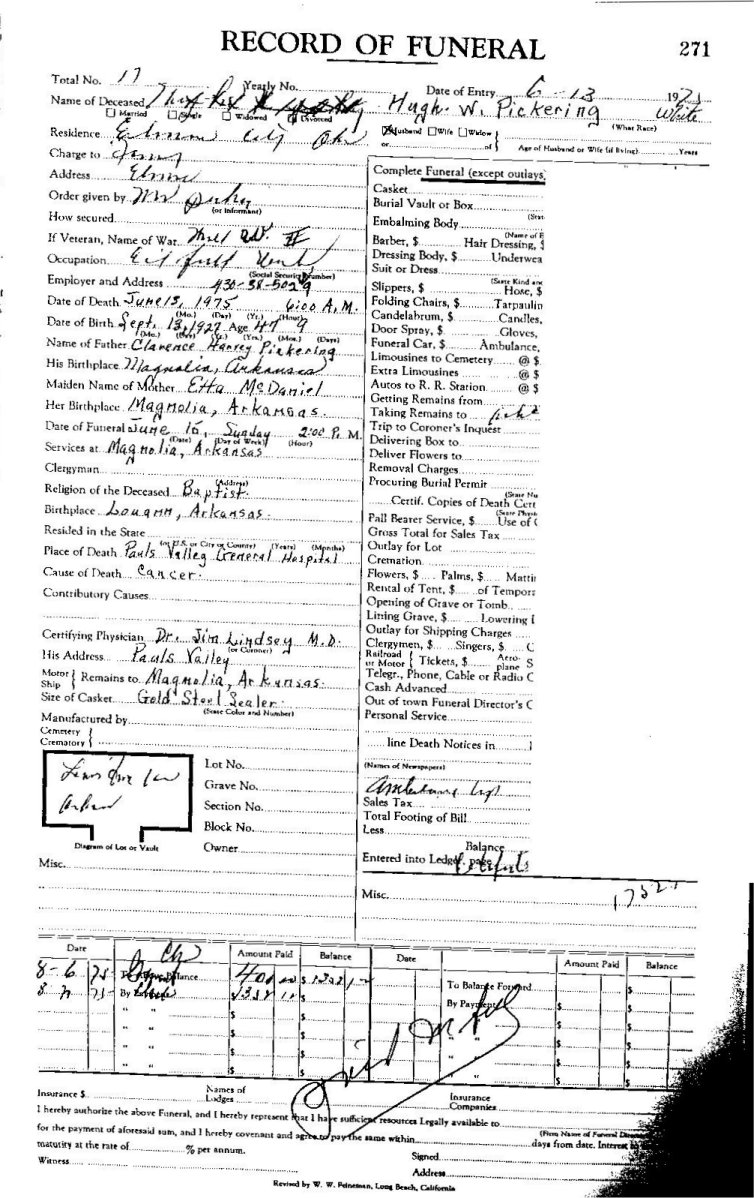 RECORD OF FUNERAL 271
Total No. 17 Yearly No. Date of Entry 6-13 1975
Name of Deceased Hugh W. Pickering White
Married Single Widowed Divorced Husband Wife Widow (What Race)
or of Age of Husband or Wife (if living) Years
Residence City
Charge to
Address
Order given by
(or Informant)
How secured
If Veteran, Name of War II
Occupation
(Social Security Number)
Employer and Address 430-38-5029
Date of Death June 13, 1975 6:00 A.M.
(Mo.) (Day) (Yr.) (Hour)
Date of Birth Sept. 13, 1927 Age 47 9
(Mo.) (Day) (Yr.) (Yrs.) (Mos.) (Days)
Name of Father Clarence Harvey Pickering
His Birthplace Magnolia, Arkansas
Maiden Name of Mother Etta McDaniel
Her Birthplace Magnolia, Arkansas.
Date of Funeral June 15, Sunday 2:00 P.M.
(Date) (Day of Week) (Hour)
Services at Magnolia, Arkansas
Clergyman
(Address)
Religion of the Deceased Baptist.
Birthplace Louann, Arkansas.
Resided in the State
(or U.S. or City or County) (Years) (Months)
Place of Death Pauls Valley General Hospital
Cause of Death Cancer.
Contributory Causes
Certifying Physician Dr. Jim Lindsey M.D.
(or Coroner)
His Address Pauls Valley
Motor
Ship Remains to Magnolia, Arkansas.
Size of Casket Gold Steel Sealer.
(State Color and Number)
Manufactured by
Cemetery
Crematory
Lot No.
Grave No.
Section No.
Block No.
Diagram of Lot or Vault Owner
Misc.
Complete Funeral (except outlays
Casket
Burial Vault or Box
(Stat
Embalming Body
(Name of E
Barber, $ Hair Dressing, $
Dressing Body, $ Underwea
Suit or Dress
(State Kind and
Slippers, $ Hose, $
Folding Chairs, $ Tarpaulin
Candelabrum, $ Candles,
Door Spray, $ Gloves,
Funeral Car, $ Ambulance,
Limousines to Cemetery @ $
Extra Limousines @ $
Autos to R. R. Station @ $
Getting Remains from
Taking Remains to
Trip to Coroner's Inquest
Delivering Box to
Deliver Flowers to
Removal Charges
Procuring Burial Permit
(State Nu
Certif. Copies of Death Cert
(State Physi
Pall Bearer Service, $ Use of C
Gross Total for Sales Tax
Outlay for Lot
Cremation
Flowers, $ Palms, $ Mattin
Rental of Tent, $ of Tempora
Opening of Grave or Tomb
Lining Grave, $ Lowering D
Outlay for Shipping Charges
Clergymen, $ Singers, $ C
Railroad
or Motor Tickets, $ Aero-
plane S
Telegr., Phone, Cable or Radio C
Cash Advanced
Out of town Funeral Director's C
Personal Service
line Death Notices in
(Names of Newspapers)
Sales Tax
Total Footing of Bill
Less
Balance
Entered into Ledger, page
Misc.
Date Amount Paid Balance Date Amount Paid Balance
8-6 75 To Balance Forward
By Payment
Insurance $ Names of
Lodges Insurance
Companies
I hereby authorize the above Funeral, and I hereby represent that I have sufficient resources Legally available to
(Firm Name of Funeral
for the payment of aforesaid sum, and I hereby covenant and agree to pay the same within days from date. Interest
maturity at the rate of % per annum. Signed
Witness Address
Revised by W. W. Feineman, Long Beach, California